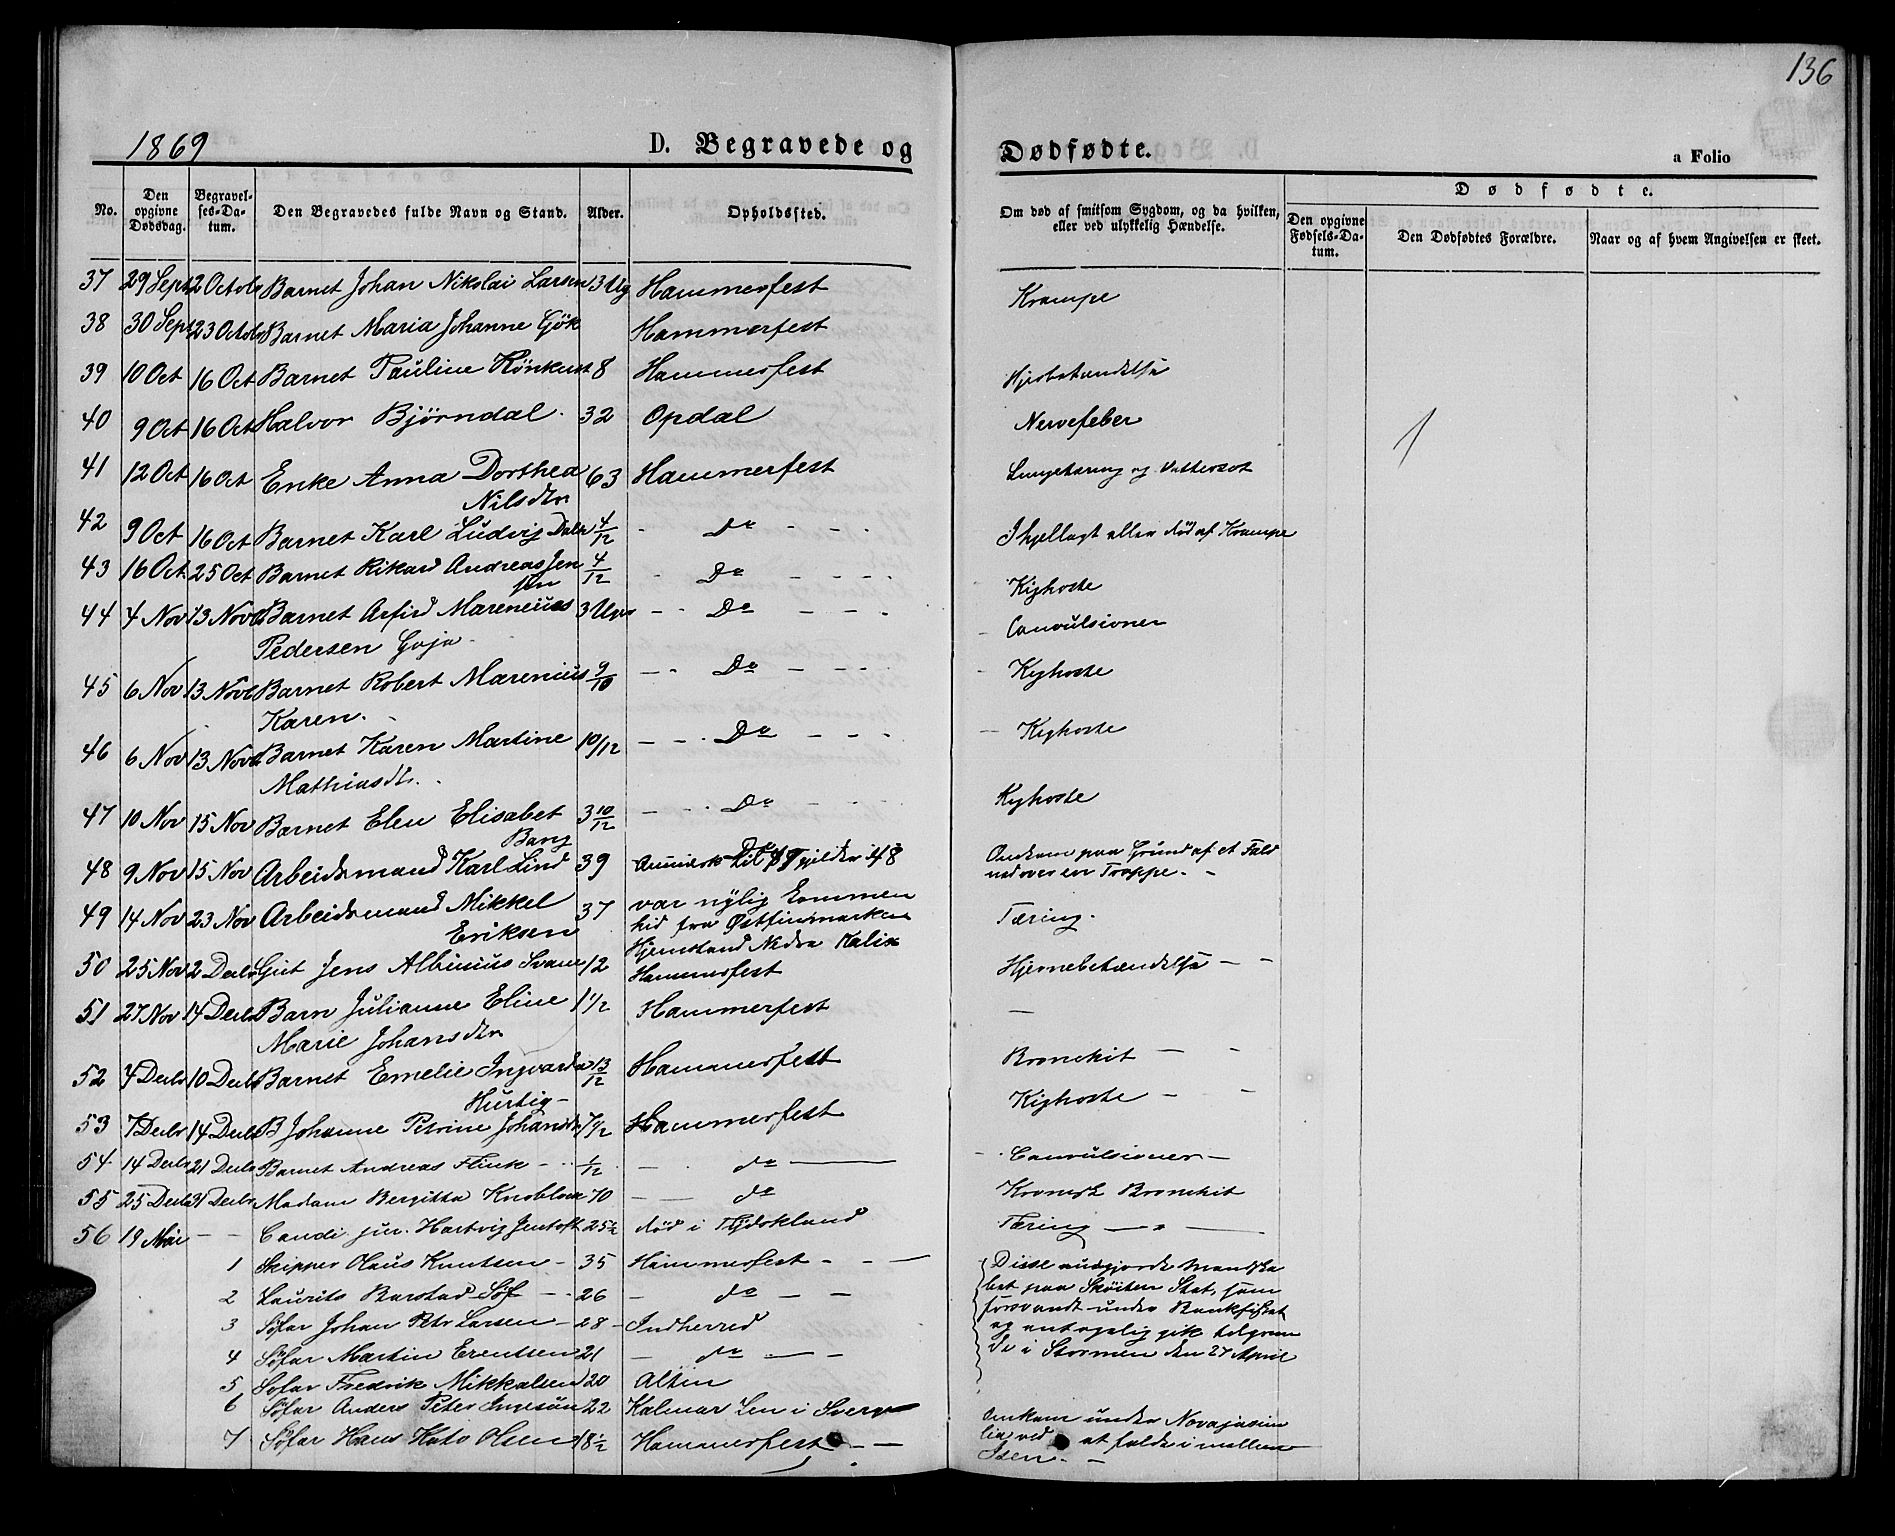 136
1869 D. Begravede og Dødfødte. a Folio
No. Den opgivne Dødsdag. Begravelses-Datum. Den Begravedes fulde Navn og Stand. Alder. Opholdssted. Om død af smitsom Sygdom, og da hvilken, eller ved ulykkelig Hændelse. Dødfødte.
Den opgivne Fødsels-Datum. Den Dødfødtes Forældre. Naar og af hvem Angivelsen er skeet.
37 29 Sept 2 Octob Barnet Johan Nikolai Larsen 3 Ug Hammerfest Krampe
38 30 Sept 23 Octob Barnet Maria Johanne Gjök Hammerfest
39 10 Oct 16 Oct Barnet Pauline 8 Hammerfest
40 9 Oct 16 Oct Halvor Bjørndal. 32 Opdal Nervefeber
41 12 Oct 16 Oct Enke Anna Dorthea 63 Hammerfest Lungetæring og Vattersot
Nilsdtr
42 9 Oct 16 Oct Barnet Karl Ludvig 4/12 - do - - Ihjellagt eller død af Krampe
43 16 Oct 25 Oct Barnet Rikard Andreas Jen 4/12 - Do - - - Kighoste
sen
44 4 Nov 13 Novb Barnet Marenius 3 - - Do - - - Convulsioner
Pedersen
45 6 Nov 13 Novb Barnet Robert Marenius 9/10 - - Do - - - Kighoste
Karen.
46 6 Nov 13 Novb Barnet Karen Martine 10/12 - - Do - - - Kighoste
Mathiasdtr.
47 10 Nov 15 Nov Barnet Elen Elisabet 3 10/12 - - Do - - Kighoste
Bang
48 9 Nov 15 Nov Arbeidsmand Karl Lind 39 Omkom paa Grund af et Fald
ned over en Trappe. -
49 14 Nov 23 Nov Arbeidsmand Mikkel 37 var nylig kommen Tæring.
Eriksen hid fra Østfinmarken
Hjemstand Nedre Kalix
50 25 Nov 2 Decbr Gut Jens Albinius Svane 12 Hammerfest Hjernebetændelse - -
51 27 Nov 14 Decbr Barn Julianne Eline 1 1/2 Hammerfest -
Marie Johansdtr
52 4 Decbr 10 Decbr Barnet Emelie Ingvarda 13/12 Hammerfest Bronchit - -
Hurtig -
53 7 Decbr 14 Decbr B Johanne Petrine Johansdtr Hammerfest Kighoste - -
54. 14 Decbr 21 Decbr Barnet Andreas Flink - 1/12 - . do - Convulsioner -
55 25 Decbr 31 Decbr Madam Bergitta 70 - - do Kronisk Bronchit
56 19 - - Candi. jur. Hartvig Jentoft 25 1/2 død i Tydskland Tæring - " -
1 Skipper Claus Knutsen - 35 Hammerfest - - - Disse udgjorde Mandska
2 Laurits Barstad Söf - 26 - do - - bet paa Skøiten Stat, som
3 Söfar Johan Petr Larsen - 28 - Indherred forsvandt under Bankfisket
4 Söfar Martin Erentsen 21 - do - - og antagelig gik tilgrun
de i Stormen den 27 April
5 Söfar Fredrik Mikkalsen 20 Alten
6 Söfar Anders Peter 22 Kalmar Len i Sverg Omkom under
7 Söfar Hans Kato Olsen 18 1/2 Hammerfest - - ved at falde i mellem
Isen. -